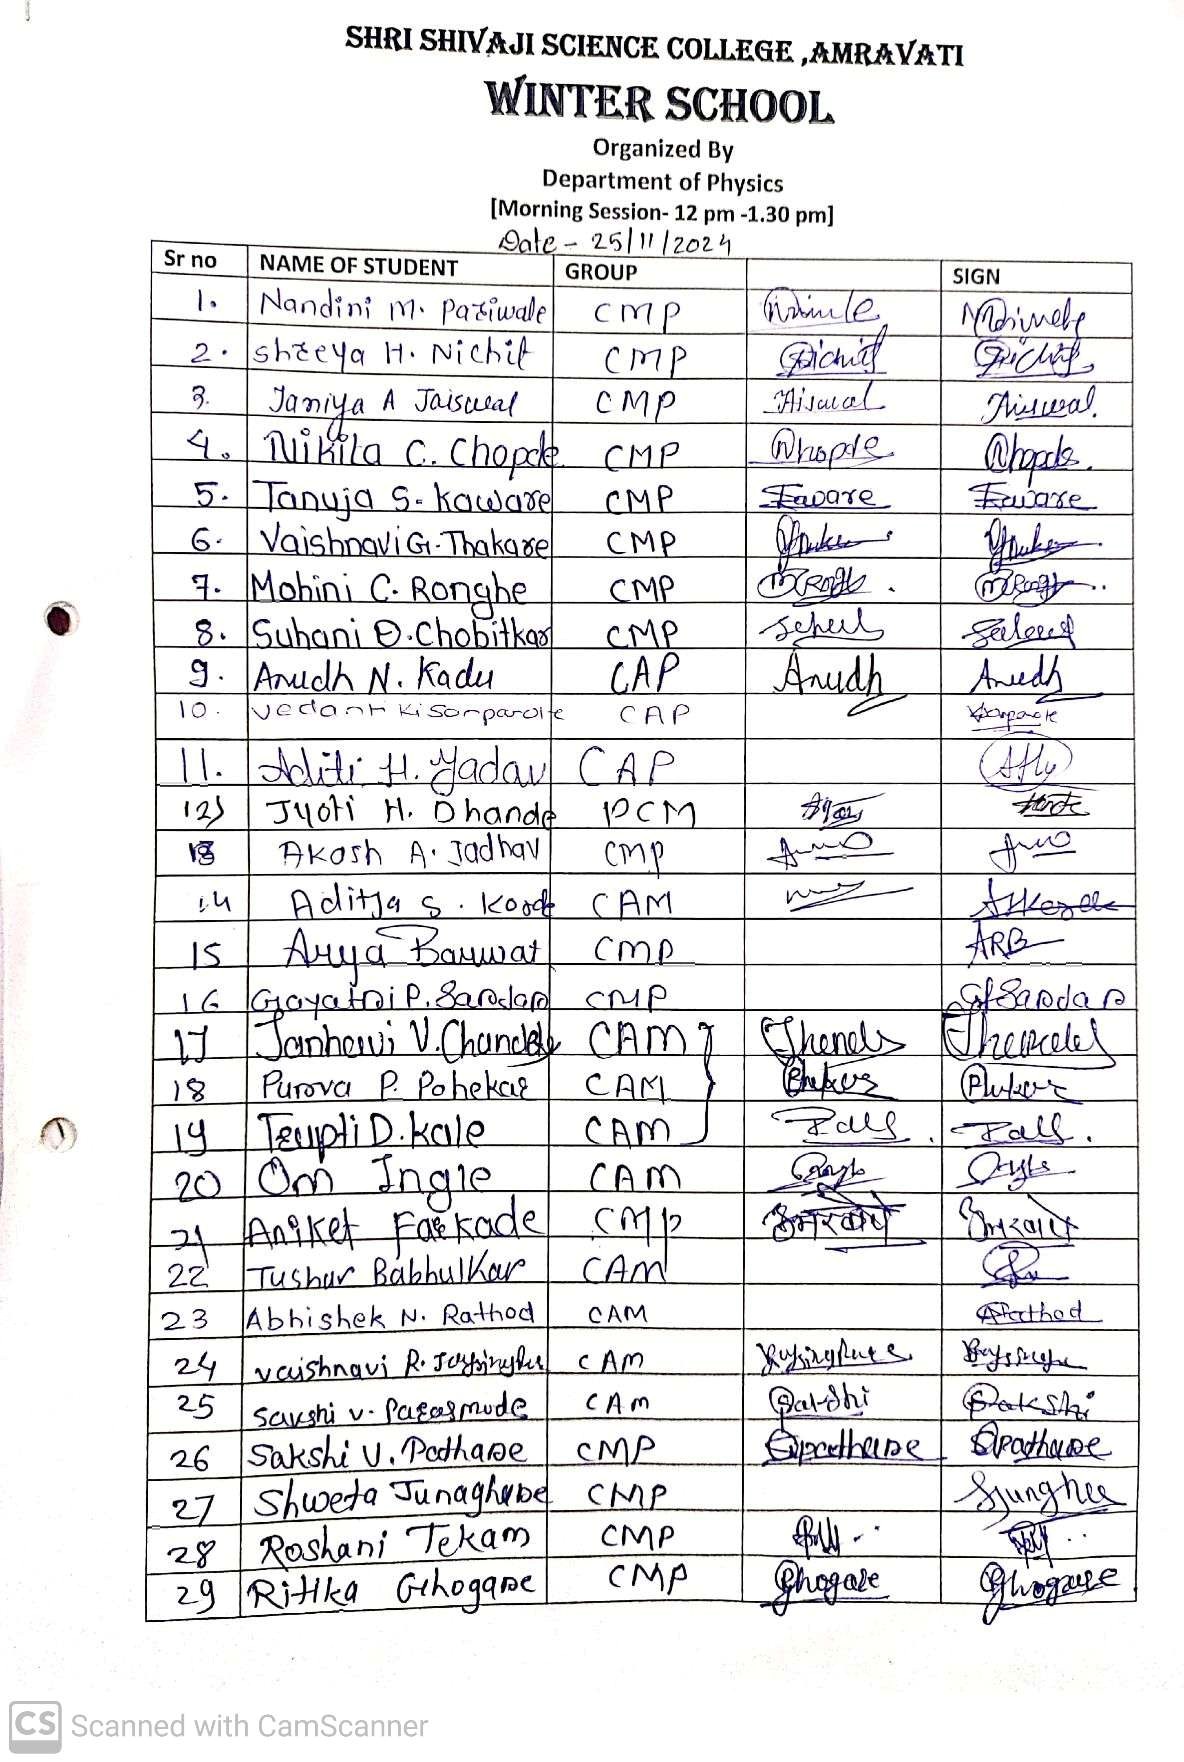 SHRI SHIVAJI SCIENCE COLLEGE ,AMRAVATI
WINTER SCHOOL
Organized By
Department of Physics
[Morning Session- 12 pm -1.30 pm]
Date - 25/11/2024
Sr no NAME OF STUDENT GROUP SIGN
1. Nandini M. Pariwale CMP
2. Shreya H. Nichit CMP
3. Taniya A Jaiswal CMP Jaiswal.
4. Nikita C. Chopde CMP
5. Tanuja S. Kaware CMP Kaware Kaware
6. Vaishnavi G. Thakare CMP
7. Mohini C. Ronghe CMP
8. Suhani D. Chobitkar CMP
9. Anudh N. Kadu CAP Anudh Anudh
10. Vedant Kisanparate CAP
11. Aditi H. Yadav CAP
12) Jyoti H. Dhande PCM
13 Akash A. Jadhav CMP
14 Aditya S. CAM
15 Arya Barwat CMP ARB
16 Gayatri P. Sardar CMP GSardar
17 Janhavi V. CAM
18 Purova P. Pohekar CAM
19 Trupti D. Kale CAM
20 Om Ingle CAM
21 Aniket Farkade CMP
22 Tushar Babhulkar CAM
23 Abhishek N. Rathod CAM ARathod
24 Vaishnavi R. CAM
25 Sakshi V. CAM Sakshi Sakshi
26 Sakshi V. Pathare CMP Spathare Spathare
27 Shweta Junaghare CMP
28 Roshani Tekam CMP
29 Ritika Ghogare CMP Ghogare Ghogare
CS Scanned with CamScanner